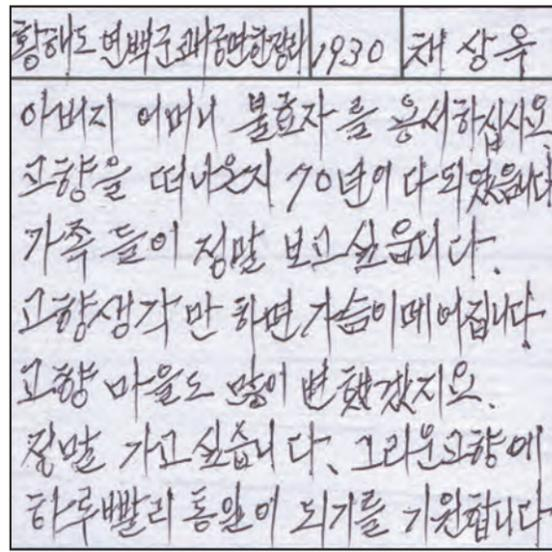 황해도 연백군 괘궁면한정리 1930 채상옥
아버지 어머니 불효자를 용서하십시오
고향을 떠나온지 70년이 다되었읍니다
가족들이 정말 보고싶읍니다.
고향생각만 하면 가슴이메어집니다
고향 마을도 많이 변했겠지요.
정말 가고싶습니다. 그리운고향에
하루빨리 통일이 되기를 기원합니다